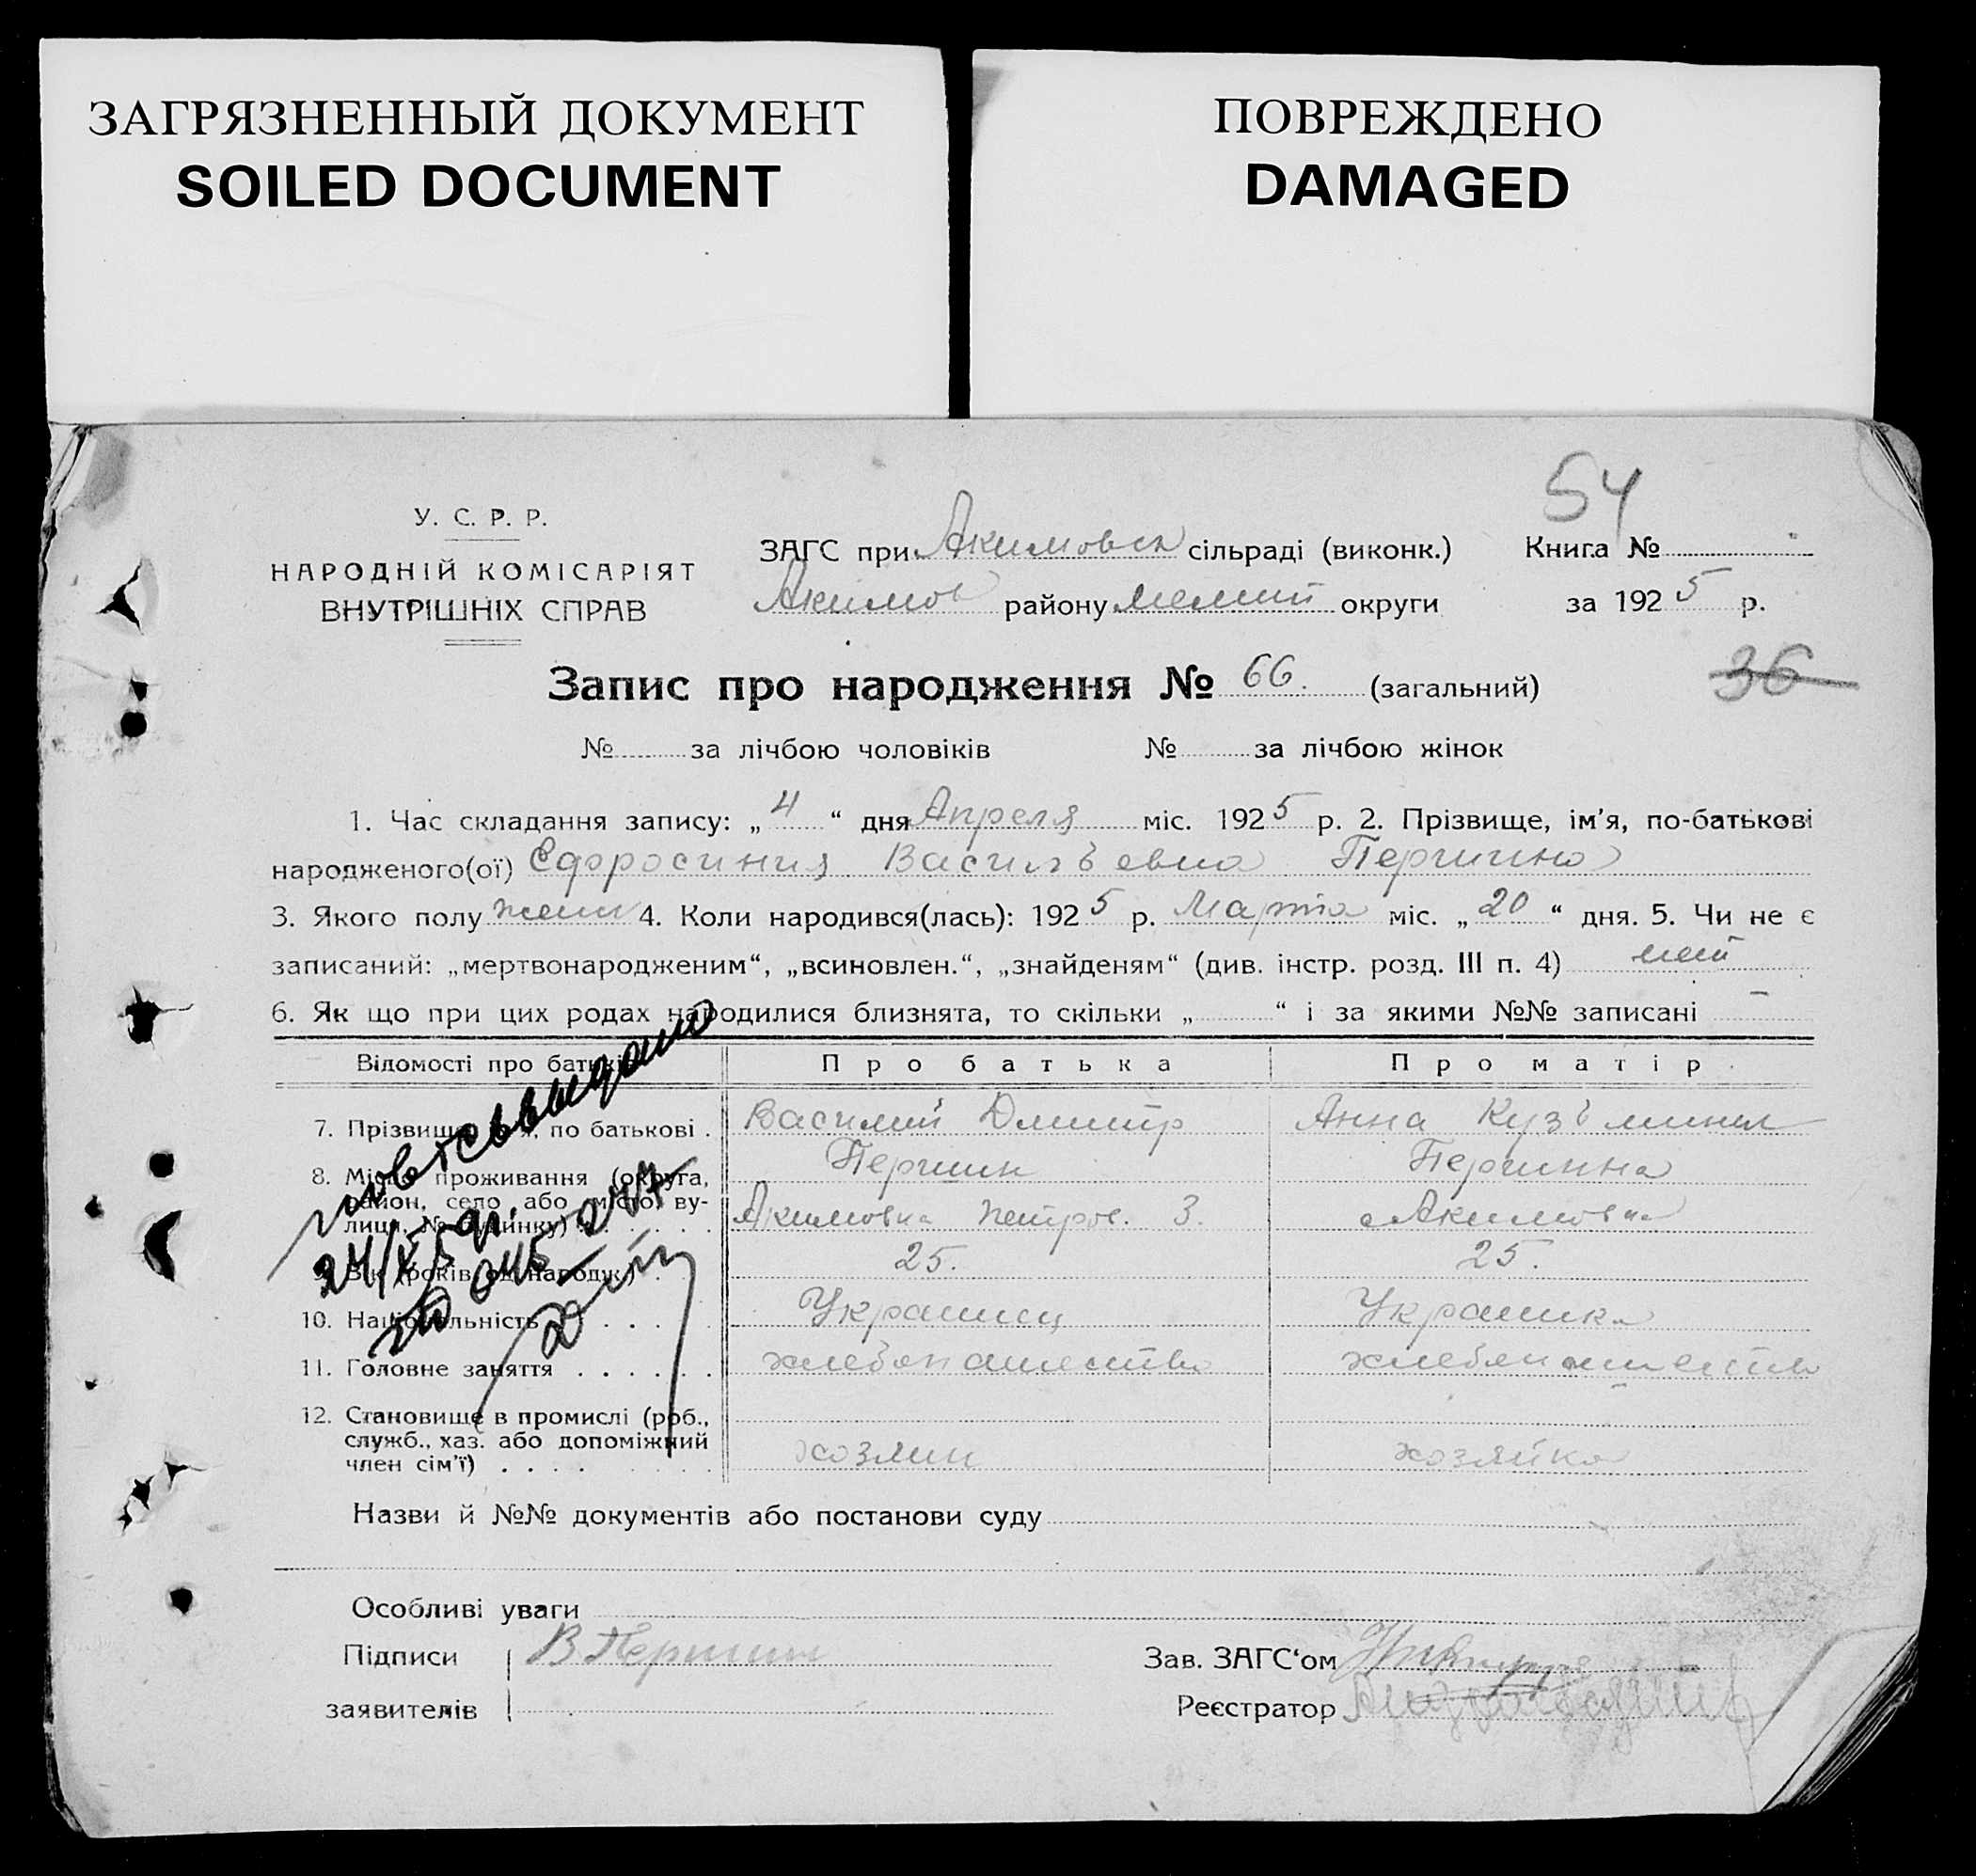 ЗАГРЯЗНЕННЫЙ ДОКУМЕНТ
SOILED DOCUMENT
ПОВРЕЖДЕНО
DAMAGED
54
У. С. Р. Р.
НАРОДНІЙ КОМІСАРІЯТ
ВНУТРІШНІХ СПРАВ
ЗАГС при Акимовск сільраді (виконк.) Книга №
Акимов району Мелит округи за 1925 р.
Запис про народження № 66. (загальний) 36
№ за лічбою чоловіків № за лічбою жінок
1. Час складання запису: „4“ дня Апреля міс. 1925 р. 2. Прізвище, ім'я, по-батькові
народженого(ої) Ефросиния Васильевна Першина
3. Якого полу женск 4. Коли народився(лась): 1925 р. Марта міс. „20“ дня. 5. Чи не є
записаний: „мертвонародженим“, „всиновлен.“, „знайденям“ (див. інстр. розд. III п. 4) нет
6. Як що при цих родах народилися близнята, то скільки „ “ і за якими №№ записані —
Відомості про батьків Про батька Про матір
7. Прізвище, ім'я, по батькові . Василий Дмитр Першин Анна Кузьминич Першина
8. Місце проживання (округа, район, село або місто, вулиця, № будинку) Акимовка Петров. 3 Акимовка
9. Вік (років од народж.) . 25. 25.
10. Національність . . . . Украинец Украинка
11. Головне заняття . . . . . . хлебопашество хлебопашество
12. Становище в промислі (роб., служб., хаз. або допоміжний член сім'ї) . . . . хозяин хозяйка
повт свы выдано
Назви й №№ документів або постанови суду
Особливі уваги
Підписи В Першин Зав. ЗАГС'ом
заявителів Реєстратор